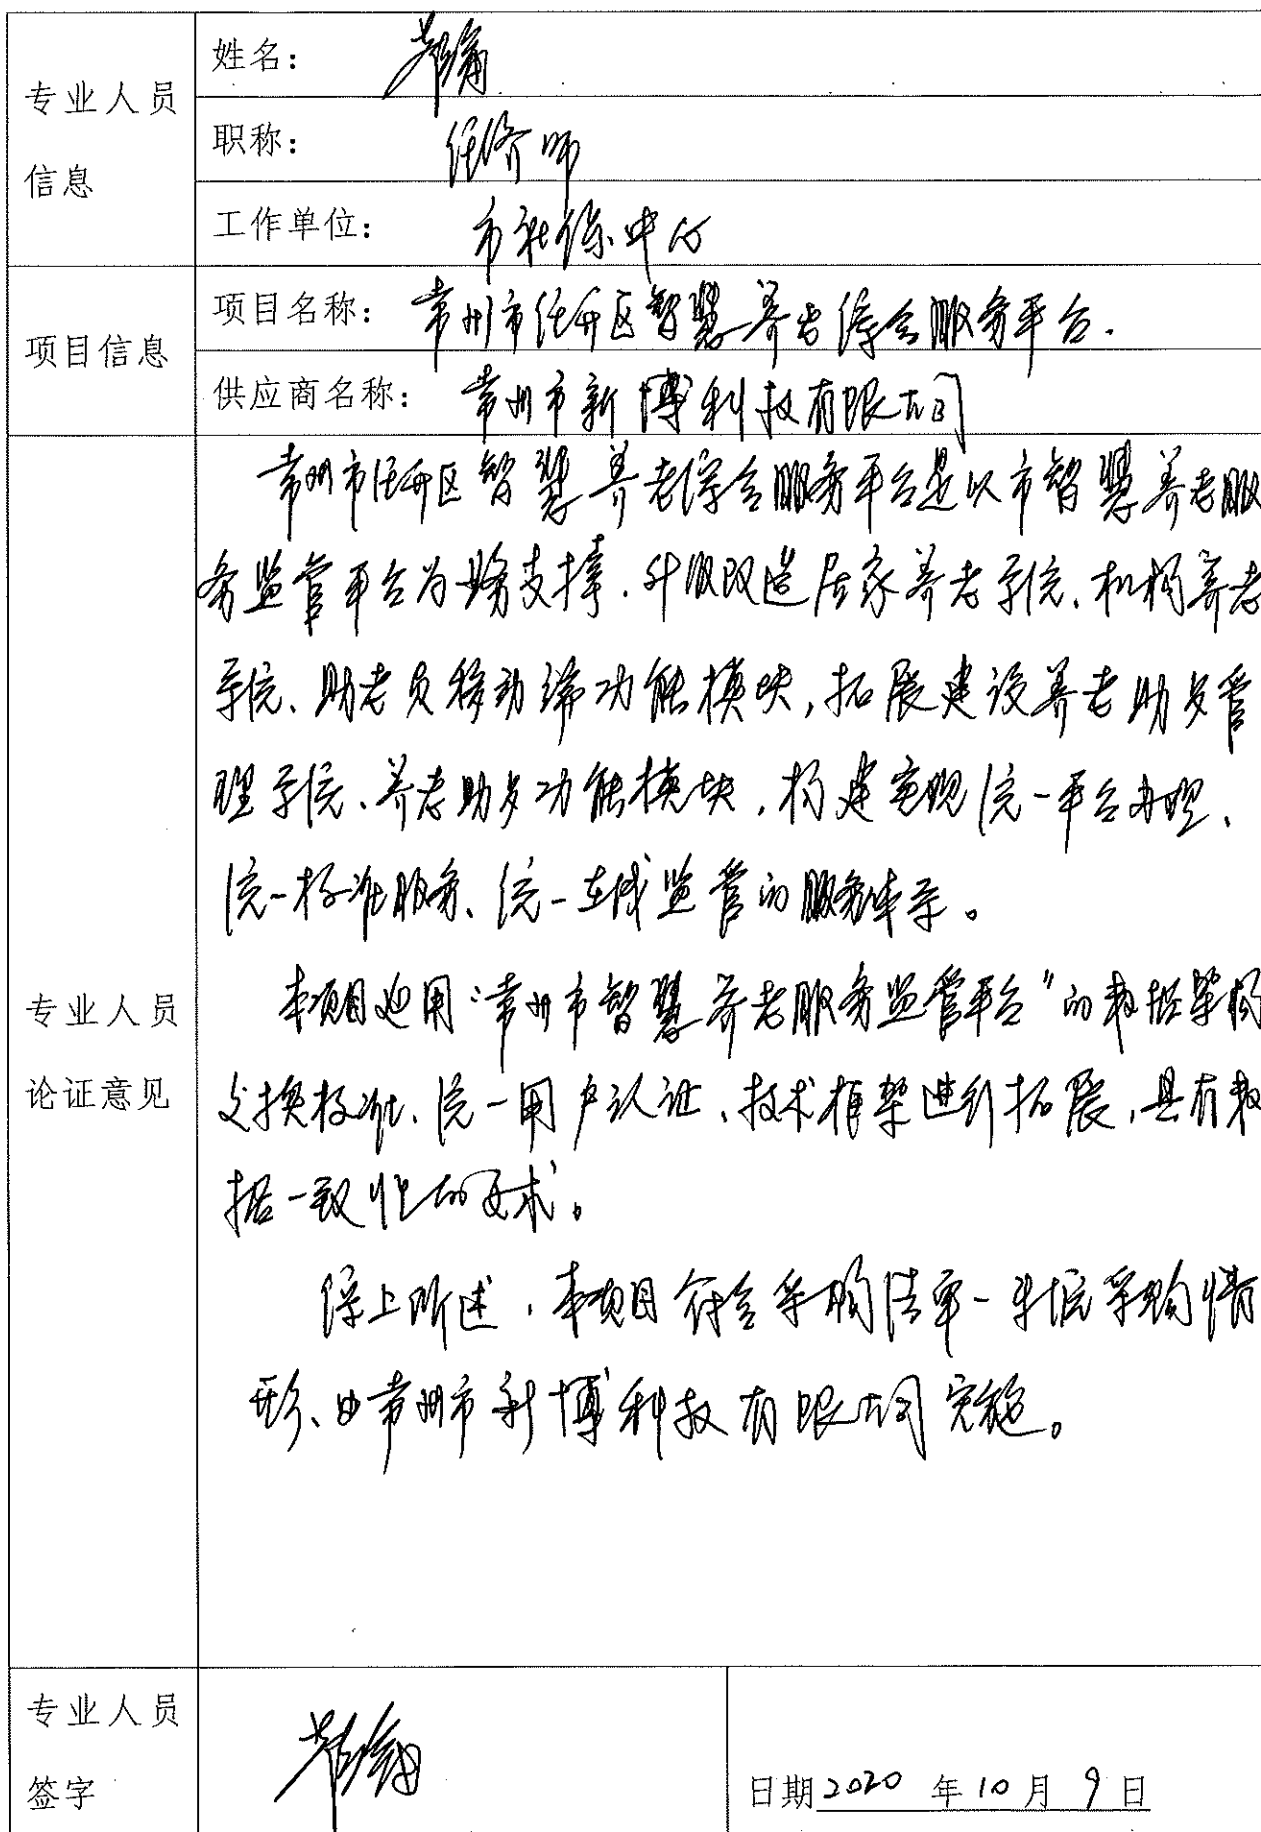 专业人员
信息
姓名：
职称：经济师
工作单位：市社保中心
项目信息
项目名称：常州市经开区智慧养老综合服务平台.
供应商名称：常州市新博科技有限公司
专业人员
论证意见
常州市经开区智慧养老综合服务平台是以市智慧养老服
务监管平台为业务支撑.升级改造居家养老系统、机构养老
系统、助老员移动端功能模块,拓展建设养老助餐管
理系统、养老助餐功能模块,构建实现统一平台办理、
统一标准服务、统一在线监管的服务体系。
本项目延用“常州市智慧养老服务监管平台”的数据架构
交换标准、统一用户认证、技术框架进行拓展,具有数
据一致性的要求。
综上所述,本项目符合采购法单一来源采购情
形、由常州市新博科技有限公司实施。
专业人员
签字
日期2020年10月9日